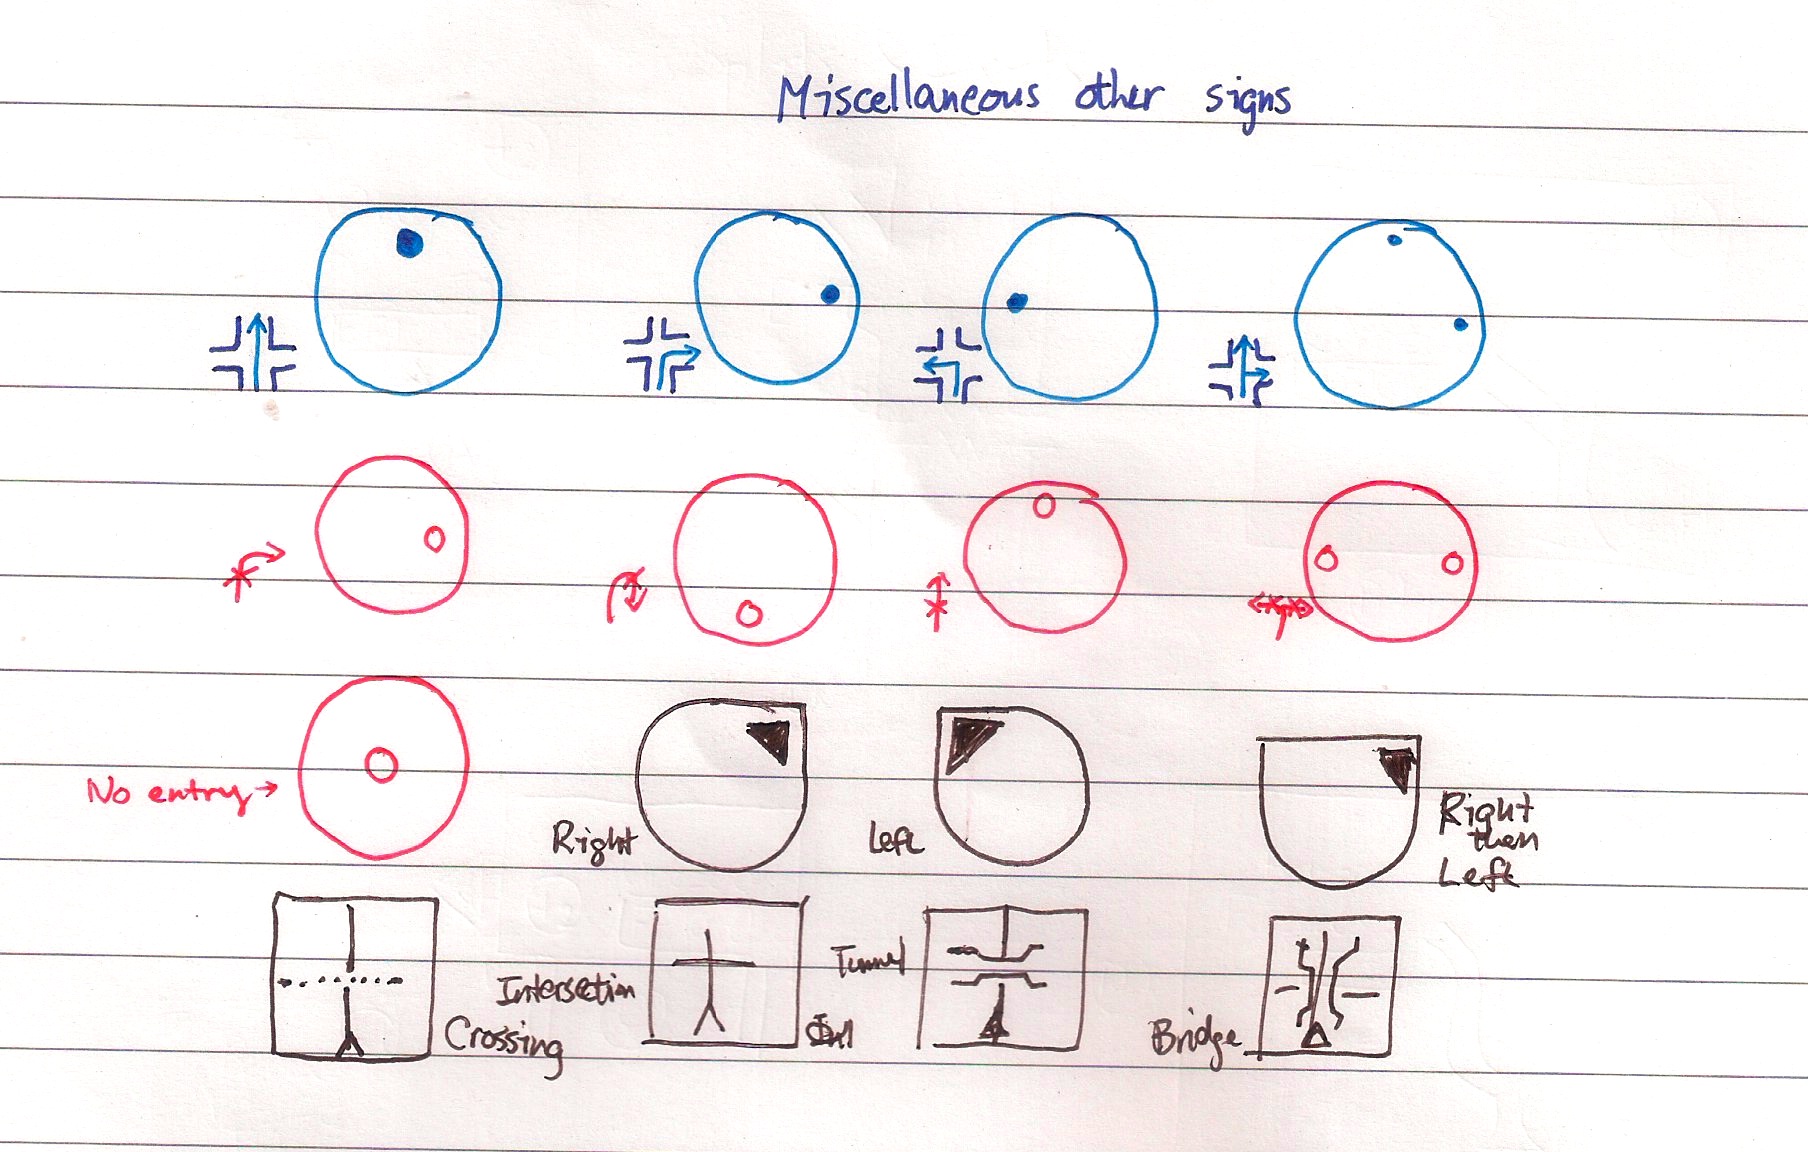 Miscellaneous other signs
No entry
Right
Left
Right
then
Left
Intersection
Crossing
Tunnel
Bridge